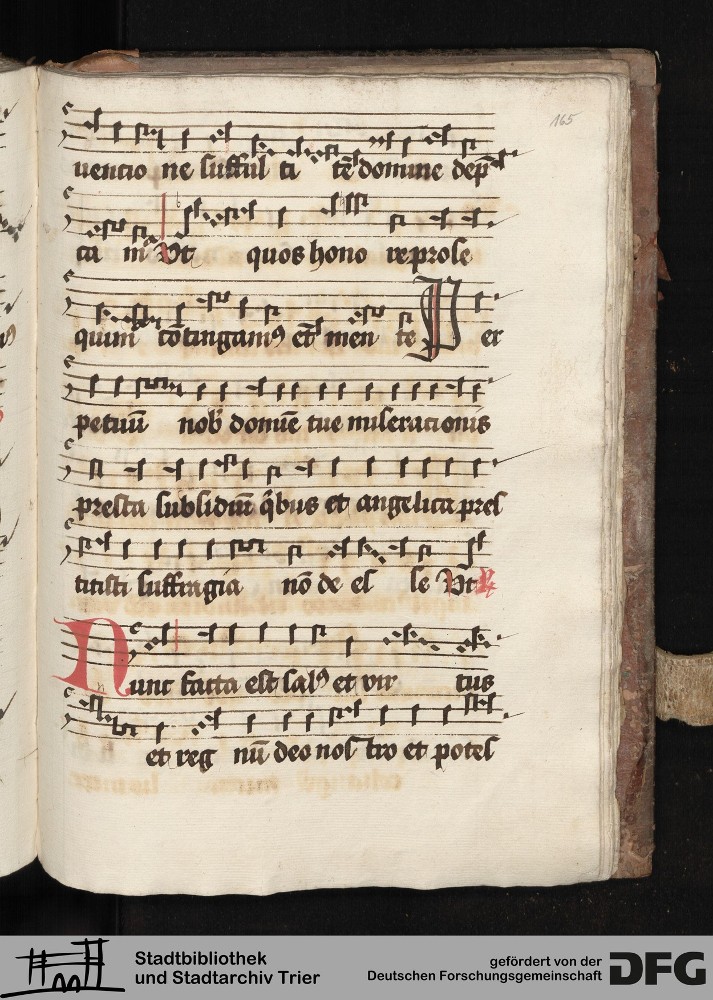 165
uencio ne sufful ti tē domine dep̄
ca m̄ Vt quos hono re prole
quim̄ cōtingamꝰ et men te Per
petuū nob̄ domīe tue miseracionis
presta subsidiū q̄bus et angelica pres
titisti suffragia nō de es se Vt R
Nunc facta est salꝰ et vir tus
et reg nū deo nos tro et potes
Stadtbibliothek
und Stadtarchiv Trier
gefördert von der
Deutschen Forschungsgemeinschaft DFG